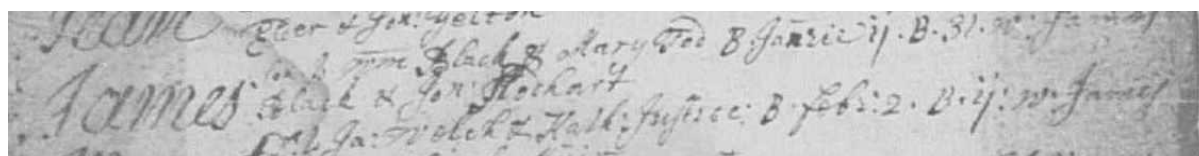 Peter & Jon: Yelton
James Son to Wm Black & Mary Tod B. Janrie 11. B. 31. w: James
Black & Jon: Lockart
Ja: Welch & Kath: Justice: B. febr: 2. B. 11: w: James